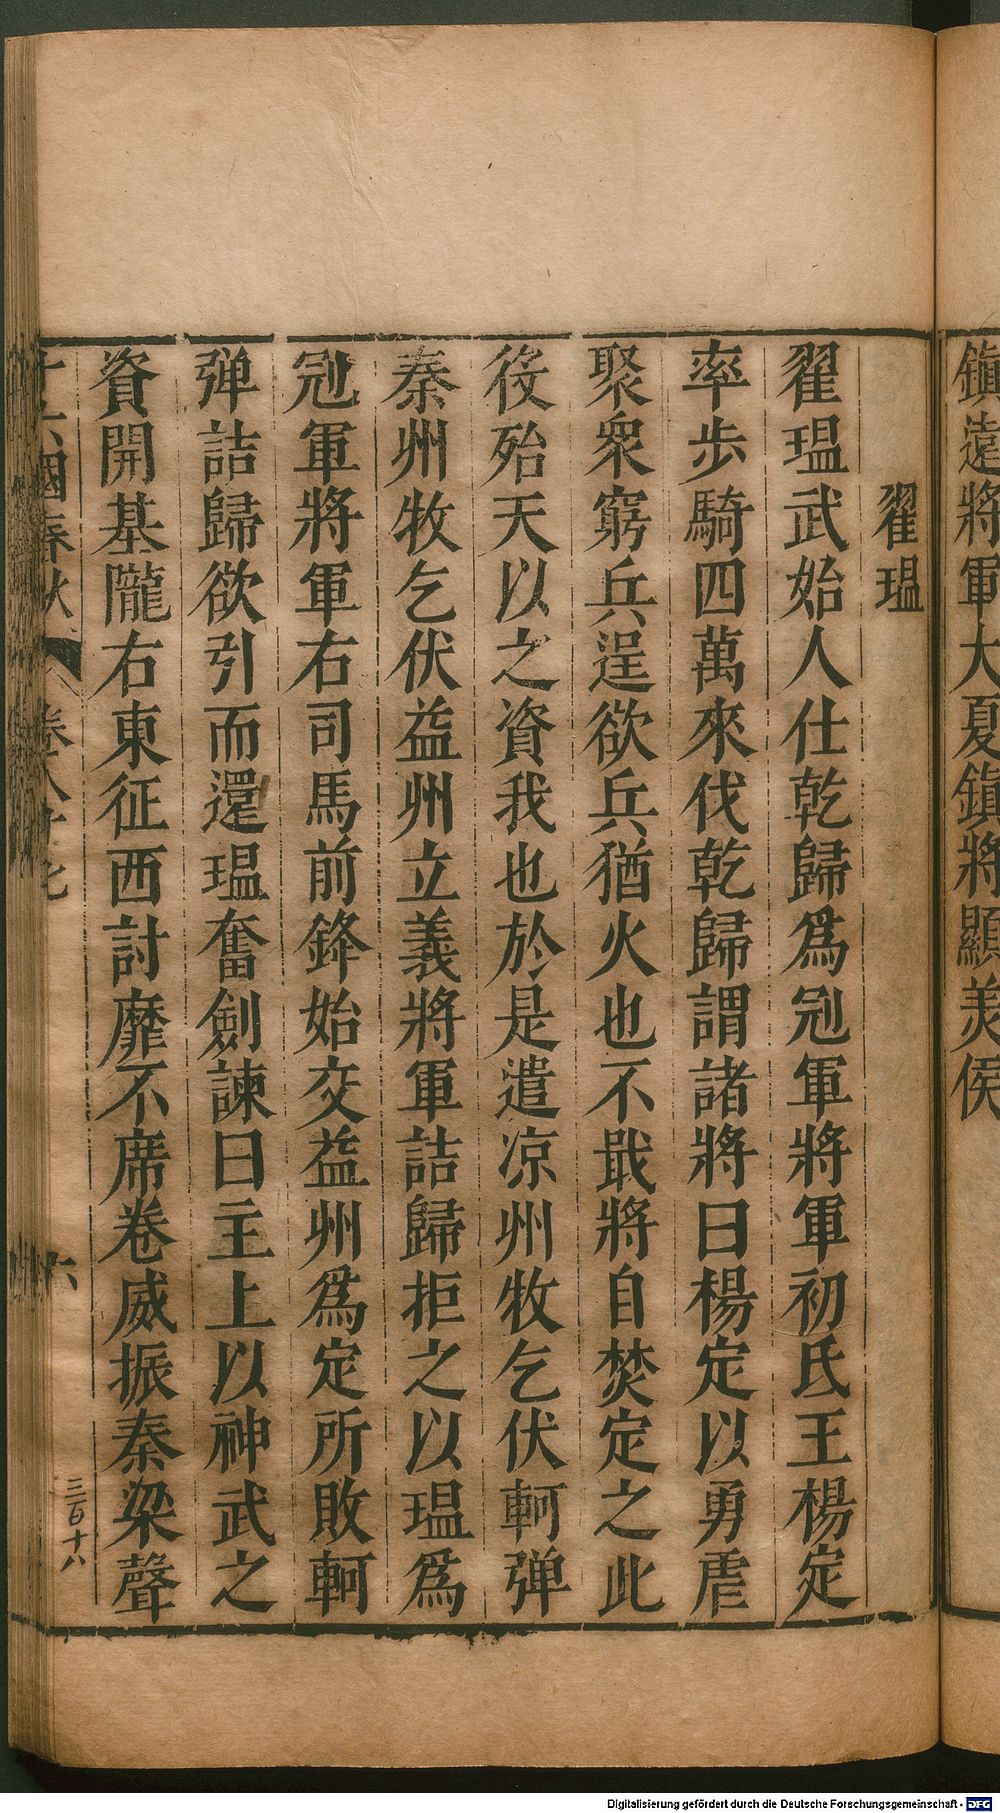 鎮遠將軍大夏鎮將顯美侯
翟瑥
翟瑥武始人仕乾歸爲冠軍將軍初氐王楊定
率步騎四萬來伐乾歸謂諸將曰楊定以勇虐
聚衆窮兵逞欲兵猶火也不戢將自焚定之此
役殆天以之資我也於是遣凉州牧乞伏軻彈
秦州牧乞伏益州立義將軍詰歸拒之以瑥爲
冠軍將軍右司馬前鋒始交益州爲定所敗軻
彈詰歸欲引而還瑥奮劍諫曰主上以神武之
資開基隴右東征西討靡不席卷威振秦梁聲
十六國春秋 卷八十七 六
三百十八
Digitalisierung gefördert durch die Deutsche Forschungsgemeinschaft - DFG